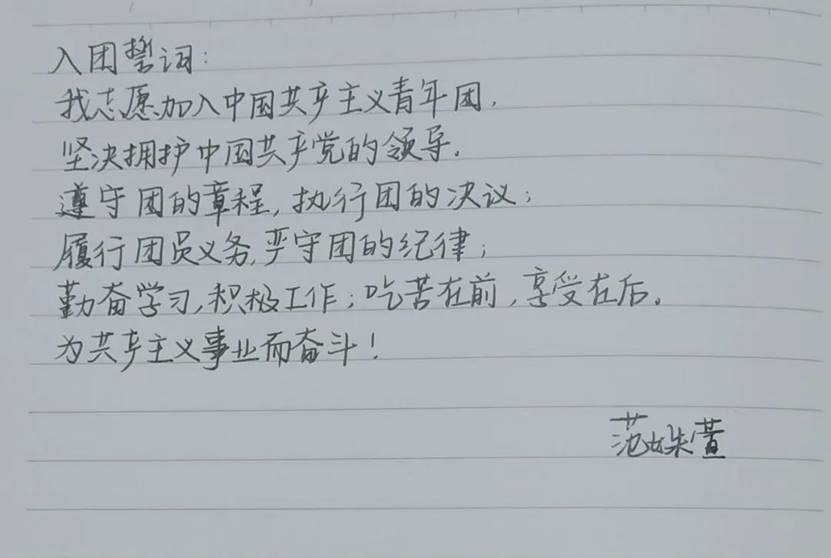 入团誓词：
我志愿加入中国共产主义青年团，
坚决拥护中国共产党的领导，
遵守团的章程，执行团的决议；
履行团员义务，严守团的纪律；
勤奋学习，积极工作；吃苦在前，享受在后。
为共产主义事业而奋斗！
范姝萱